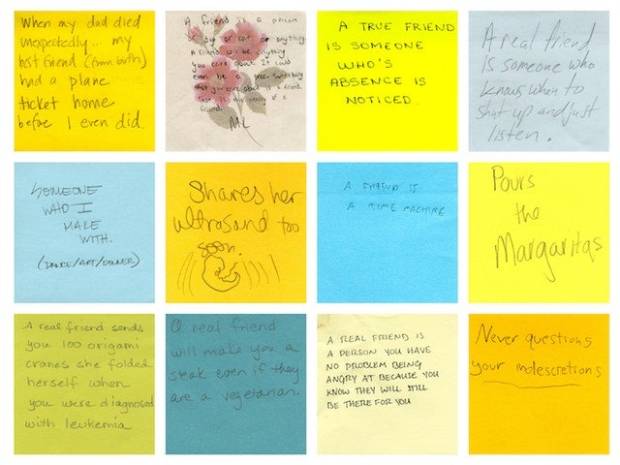 When my dad died
unexpectedly... my
best friend (from birth)
had a plane
ticket home
before I even did.
A friend is a person
or cat or anything
A friend can be anything
you care about. It could
even be
that you care about is a friend.
ML
A TRUE FRIEND
IS SOMEONE
WHO'S
ABSENCE IS
NOTICED.
A real friend
is someone who
knows when to
shut up and just
listen.
SOMEONE
WHO I
MAKE
WITH.
(DANCE/ART/DINNER)
Shares her
ultrasound too
soon.
A FRIEND IS
A MACHINE
Pours
the
Margaritas
A real friend sends
you 100 origami
cranes she folded
herself when
you were diagnosed
with leukemia
A real friend
will make you a
steak even if they
are a vegetarian
A REAL FRIEND IS
A PERSON YOU HAVE
NO PROBLEM BEING
ANGRY AT BECAUSE YOU
KNOW THEY WILL STILL
BE THERE FOR YOU
Never questions
your indescretions